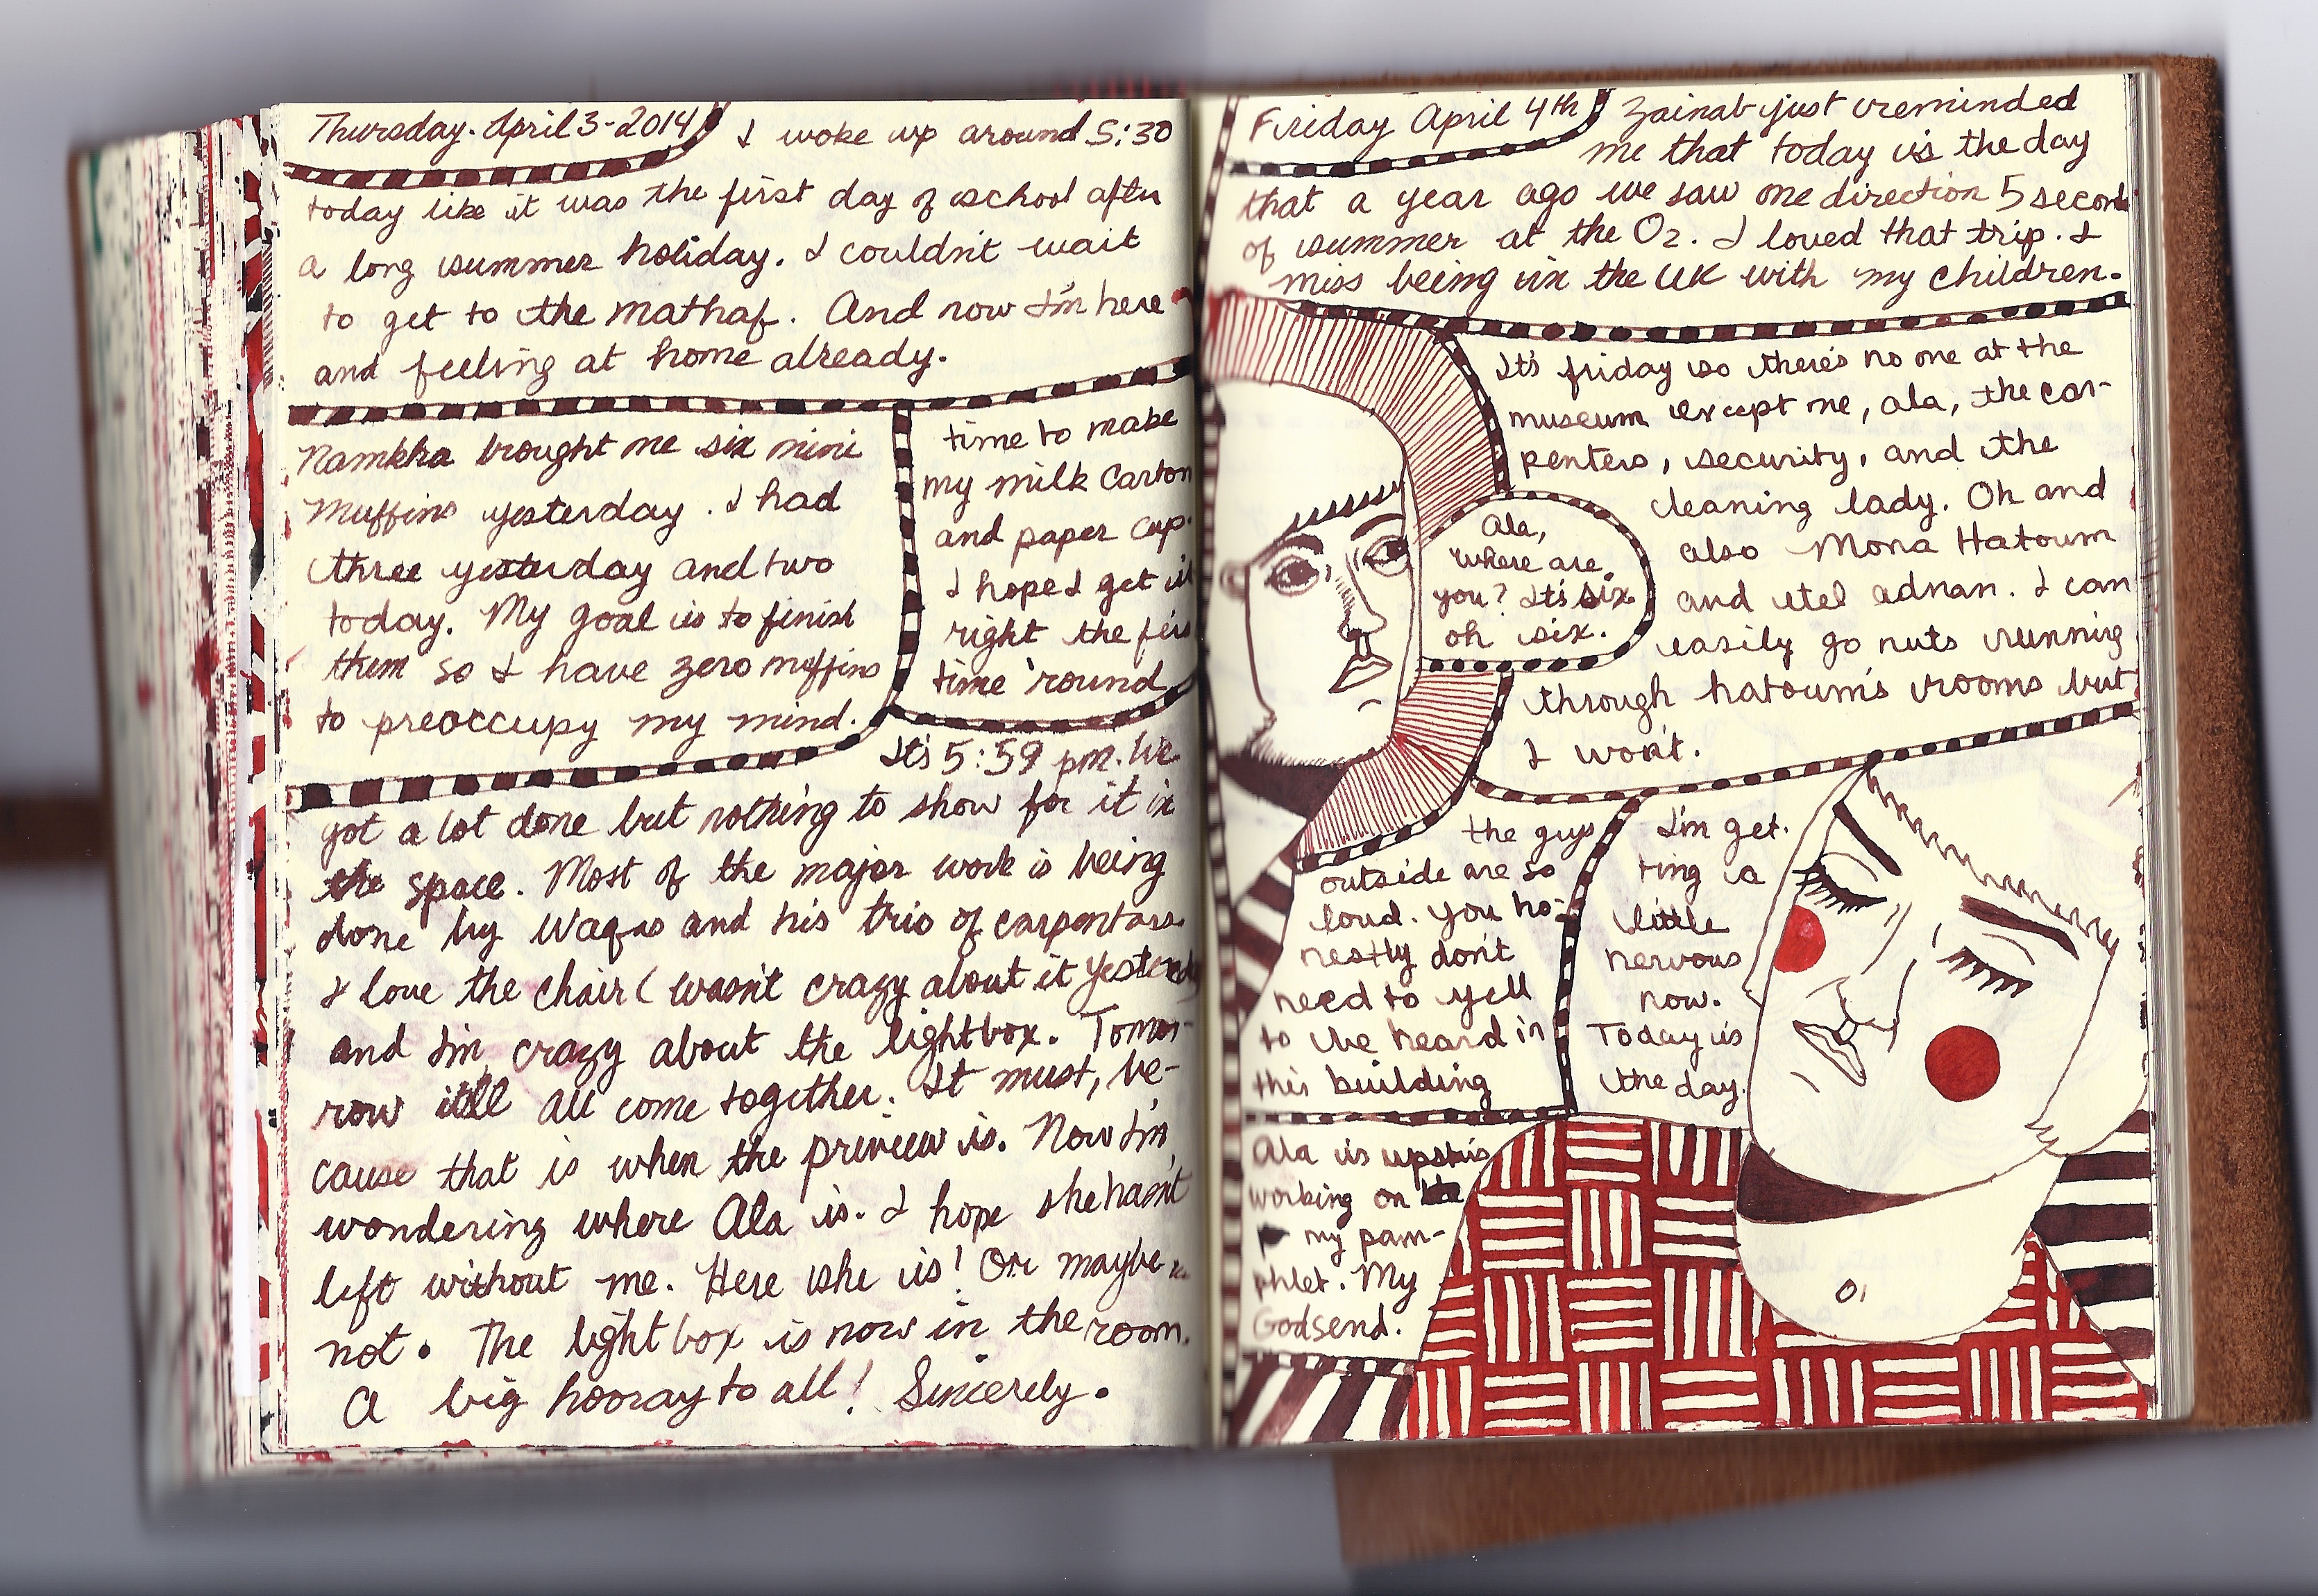 Thursday. April 3-2014
I woke up around 5:30
today like it was the first day of school after
a long summer holiday. I couldn't wait
to get to the mathaf. And now I'm here
and feeling at home already.
Namkha brought me six mini
muffins yesterday. I had
three yesterday and two
today. My goal is to finish
them so I have zero muffins
to preoccupy my mind.
time to make
my milk carton
and paper cup.
I hope I get it
right the firs
time 'round
It's 5:59 pm. We
got a lot done but nothing to show for it in
the space. Most of the major work is being
done by Waqas and his trio of carpenters.
I love the chair (wasn't crazy about it yesterday
and I'm crazy about the lightbox. Tomor-
row it'll all come together. It must, be-
cause that is when the preview is. Now I'm
wondering where Ala is. I hope she hasn't
left without me. Here she is! Or maybe
not. The light box is now in the room.
A big hooray to all! Sincerely.
Friday April 4th
Zainab just reminded
me that today is the day
that a year ago we saw one direction 5 seconds
of summer at the O2. I loved that trip. I
miss being in the UK with my children.
It's friday so there's no one at the
museum except me, ala, the car-
penters, security, and the
cleaning lady. Oh and
also Mona Hatoum
and etel adnan. I can
easily go nuts running
through hatoum's rooms but
I won't.
Ala,
where are
you? It's six
oh six.
the guys
outside are so
loud. You ho-
nestly don't
need to yell
to be heard in
this building
I'm get-
ting a
little
nervous
now.
Today is
the day.
Ala is upstairs
working on
my pam-
phlet. My
Godsend.